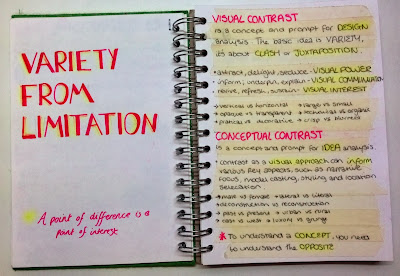 VARIETY
FROM
LIMITATION
A point of difference is a
point of interest
VISUAL CONTRAST
is a concept and prompt for DESIGN
analysis. The basic idea is VARIETY,
it's about CLASH or JUXTAPOSITION.
attract, delight, seduce - VISUAL POWER
inform, underpin, explain - VISUAL COMMUNICATION
revive, refresh, sustain - VISUAL INTEREST
vertical vs horizontal
large vs small
opaque vs transparent
technical vs organic
vs decorative
crisp vs blurred
CONCEPTUAL CONTRAST
is a concept and prompt for IDEA analysis.
contrast as a visual approach can inform
various key aspects, such as narrative
focus, model casting, styling and location
selection
male vs female
literal vs lateral
deconstruction vs reconstruction
past vs present
urban vs rural
east vs west
luxury vs grungy
* To understand a CONCEPT, you need
to understand the OPPOSITE